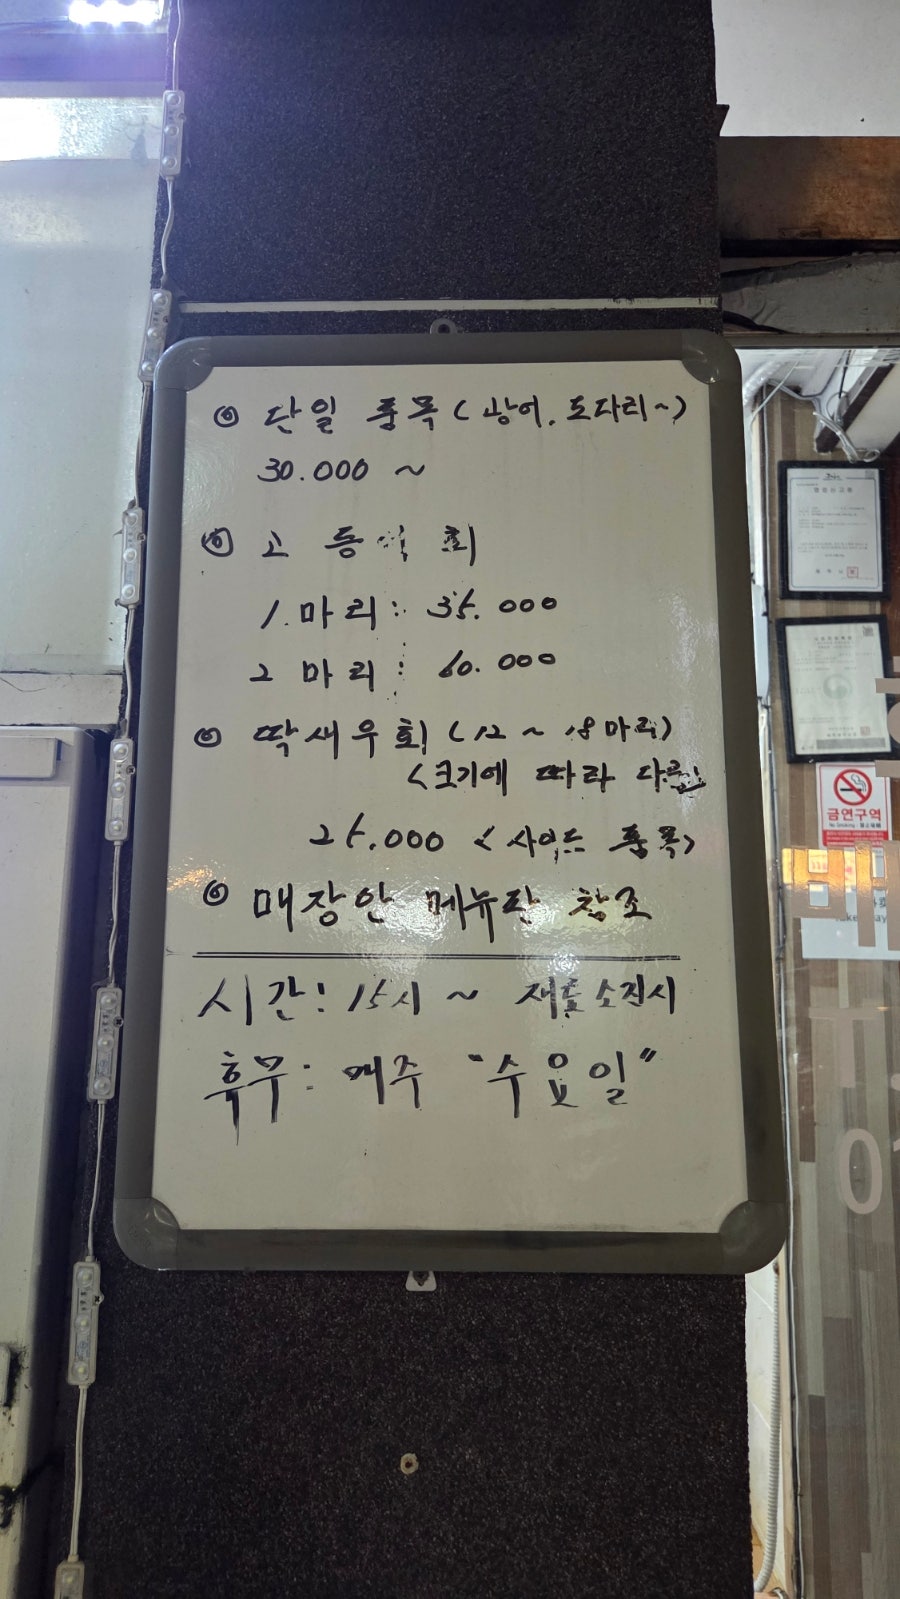 ◎ 단일 품목 (광어, 도다리~)
30.000 ~
◎ 고등어 회
1 마리 : 35.000
2 마리 : 60.000
◎ 딱새우회 (12 ~ 18마리)
<크기에 따라 다름>
25.000 <사이드 품목>
◎ 매장안 메뉴판 참조
시간: 15시 ~ 재료소진시
휴무: 매주 "수요일"
금연구역